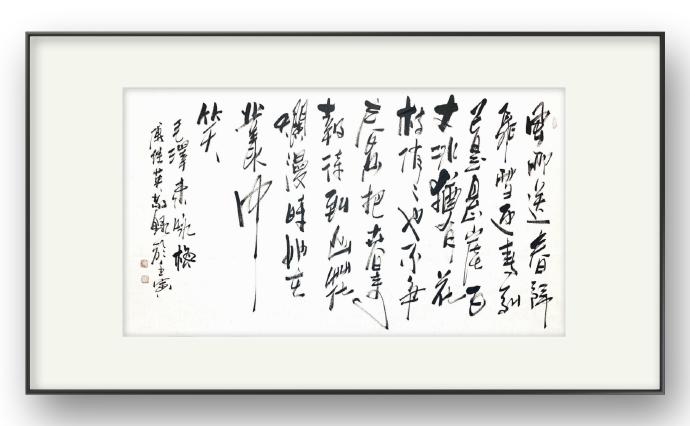 風雨送春歸
飛雪迎春到
已是懸崖百
丈冰猶有花
枝俏俏也不爭
春只把春來
報待到山花
爛漫時她在
叢中
笑
毛澤東詠梅